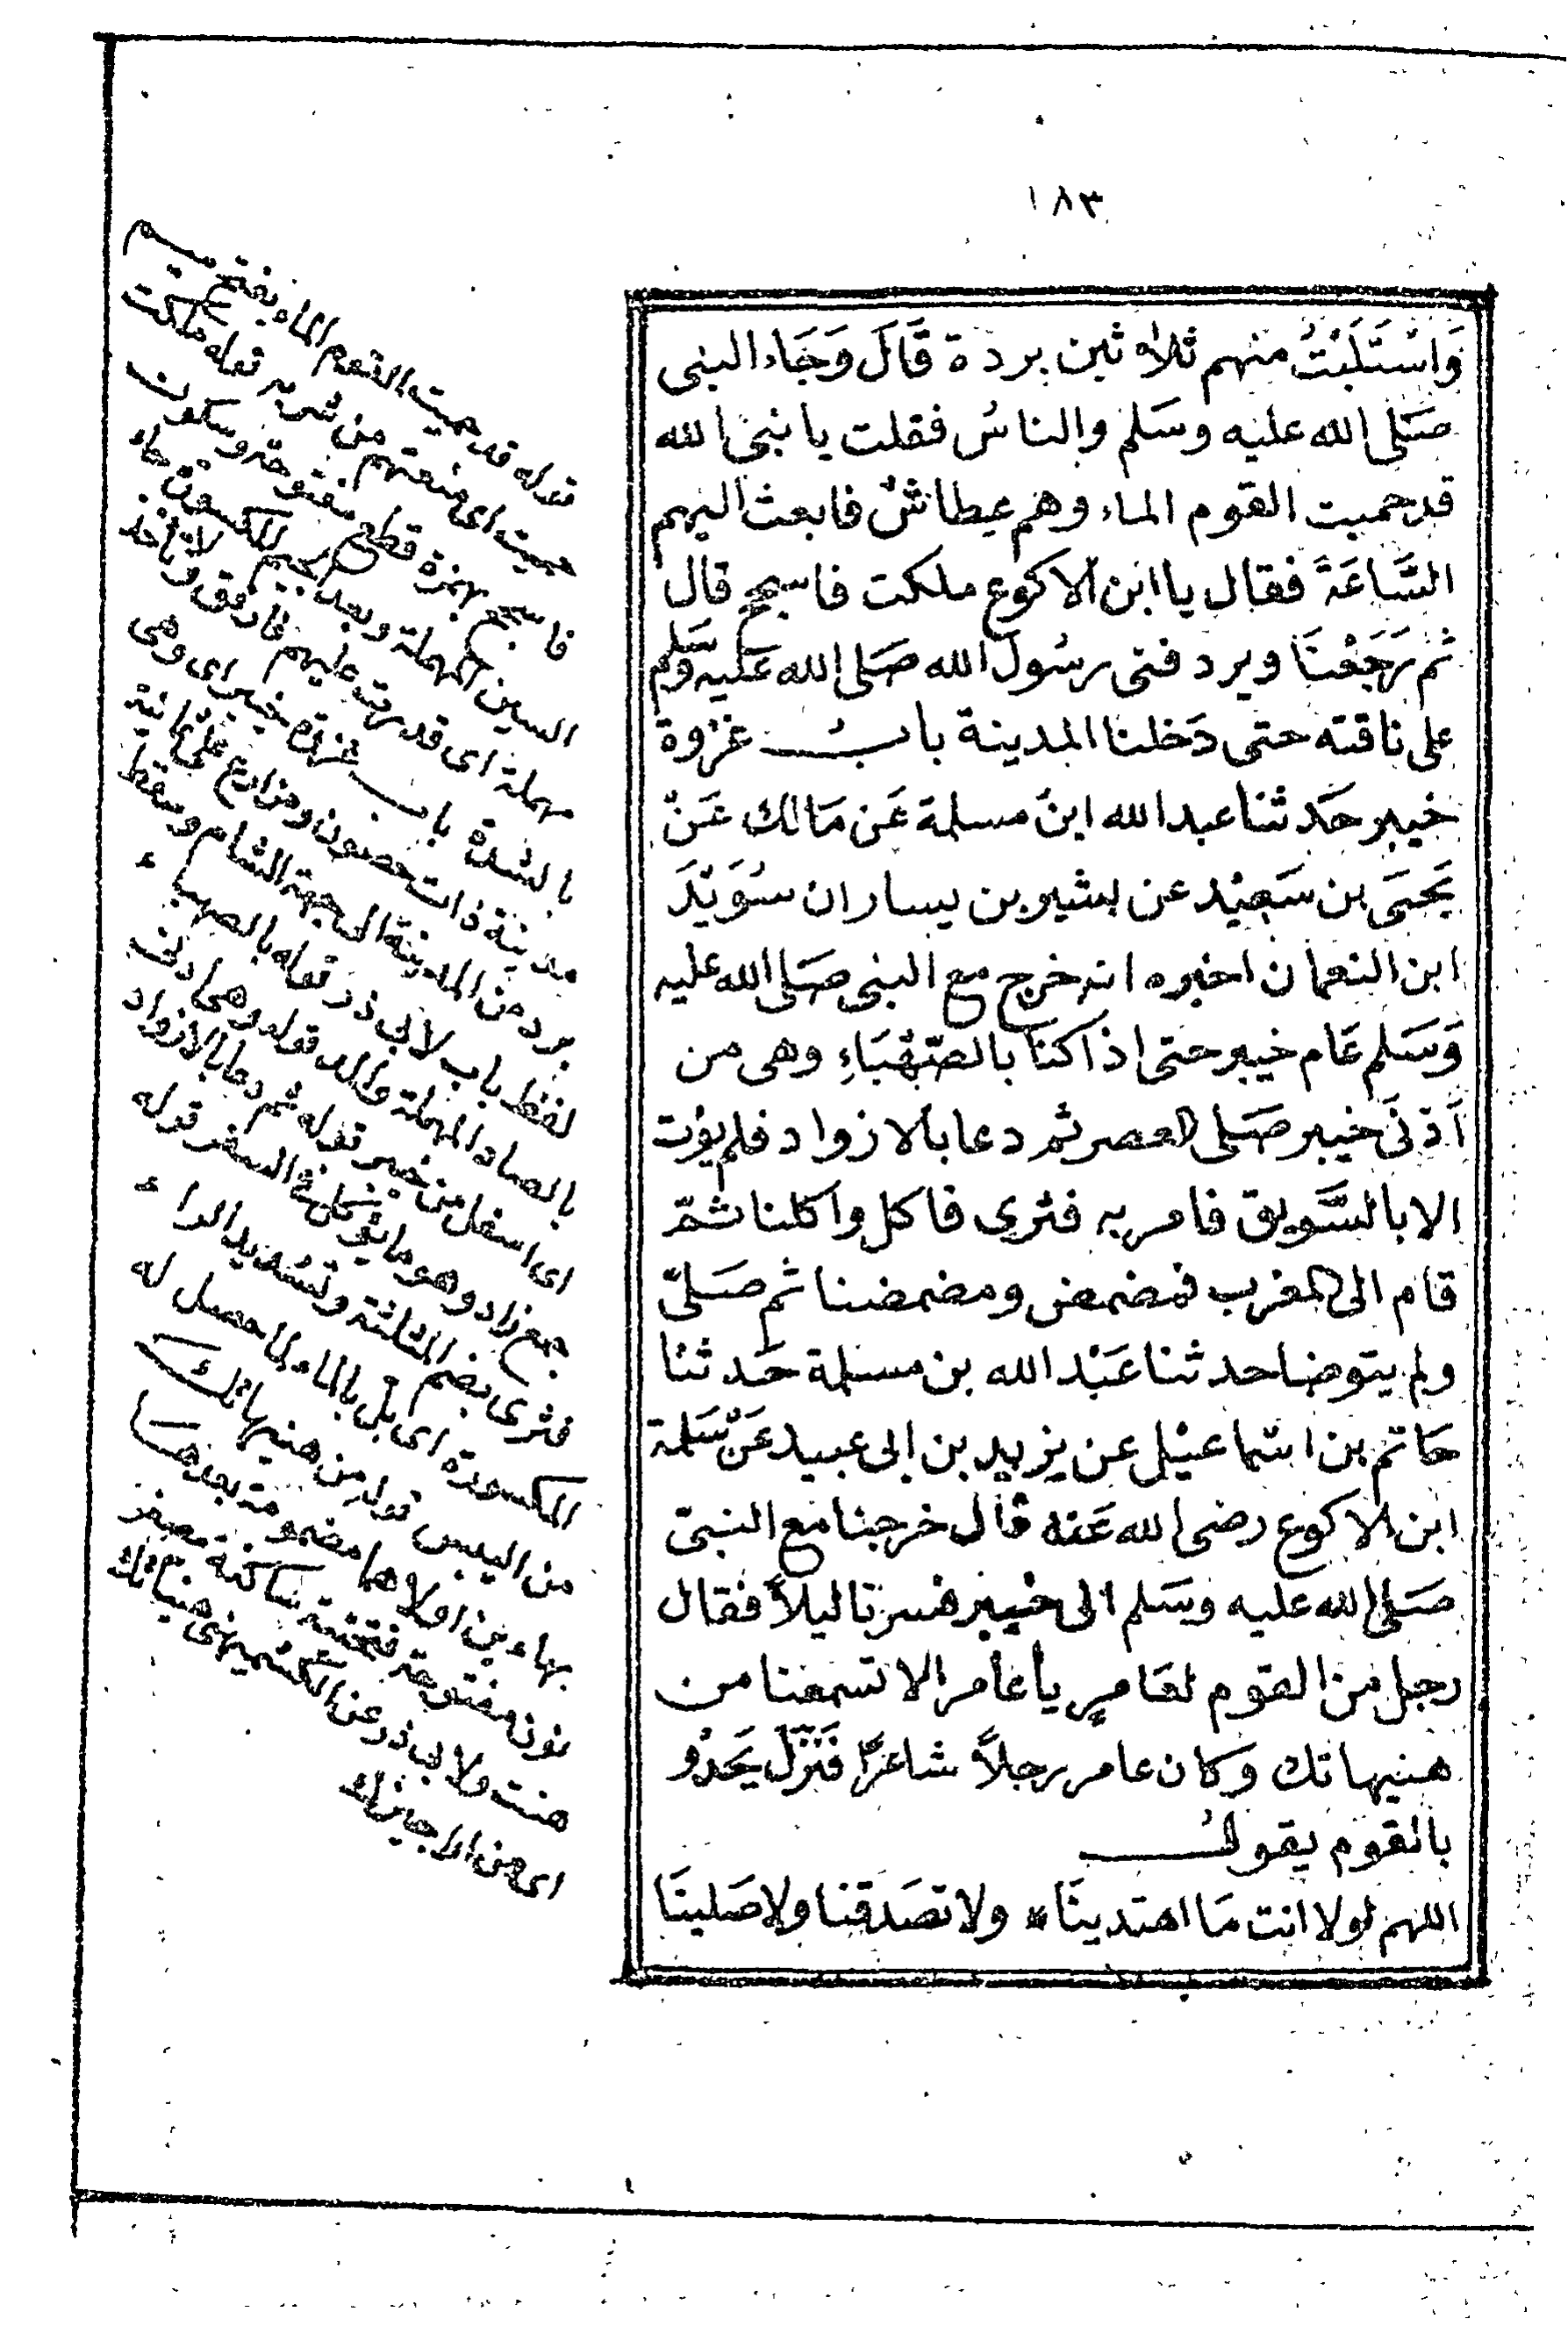 ١٨٣
وَاسْتَلَبْتُ منهم ثلاثين بردة قَالَ وَجَاء النبى
صَلى الله عليه وسَلم والناسُ فقلت يا نبى الله
قد حميت القوم الماء وهم عِطاشٌ فابعث اليهم
السَّاعَةَ فقال يا ابن الاكوع ملكت فاسجح قال
ثم رَجَعْنَا ويرد فنى رسُول الله صَلى الله عَليه وسَلم
على ناقته حتى دَخلنا المدينة بابُ غزوة
خيبر حَدثنا عبد الله ابن مسلمة عَن مَالك عَنْ
يَحيَى بن سَعِيْد عن بشير بن يسار ان سُوَيْدَ
ابن النعمان اخبره انه خرج مع النبى صَلى الله عليه
وَسَلم عَام خيبر حتى اذا كنا بالصَّهْبَاءِ وهى من
اَدْنَى خيبر صَلى العصر ثم دعا بالازواد فلم يؤت
الا بالسَّويق فامر به فثرى فاكل واكلنا ثمّ
قام الى المغرب فمضمض ومضمضنا ثم صَلىّ
ولم يتوضا حدثنا عَبْد الله بن مسلمة حَدثنا
حَاتم بن اسْماعيْل عن يزيد بن ابى عبيد عَنْ سَلمة
ابن الاكوع رضى الله عَنه قال خرجنا مع النبىّ
صَلى الله عليه وسَلم الى خيبر فسرنا ليلاً فقال
رجل من القوم لعَامرٍ يا عامر الا تسمعنا من
هنيهاتك وكان عامر رجلاً شاعرًا فَنَزَلَ يَحْدُو
بالقوم يقولُ
اللهم لولا انت مَا اهتدينَا * ولا تصَدقنا ولا صَلينَا
قوله قد حميت القوم الماء بفتح ميم
حميت اى منعتهم من شربه قوله ملكت
فاسجح بهمزة قطع مفتوحة وسكون
السين المهملة وبعد الجيم المكسورة حاء
مهملة اى قدرت عليهم فارفق ولا تاخذ
بالشدة باب غزوة خيبر اى وهى
مدينة ذات حصون ومزارع على ثمانية
برد من المدينة الى جهة الشام وسقط
لفظ باب لابى ذر قوله بالصهباء
بالصاد المهملة والمد قوله وهى ادنى
اى اسفل من خيبر قوله ثم دعا بالازواد
جمع زاد وهو ما يؤكل فى السفر قوله
فثرى بضم المثلثة وتشديد الراء
المكسورة اى بل بالماء لما حصل له
من اليبس قوله من هنيهاتك
بهاءين اولاهما مضمومة بعدها
نون مفتوحة فتحتية ساكنة مصغر
هنت ولابى ذر عن الكشميهنى هنياتك
اى من اراجيزك